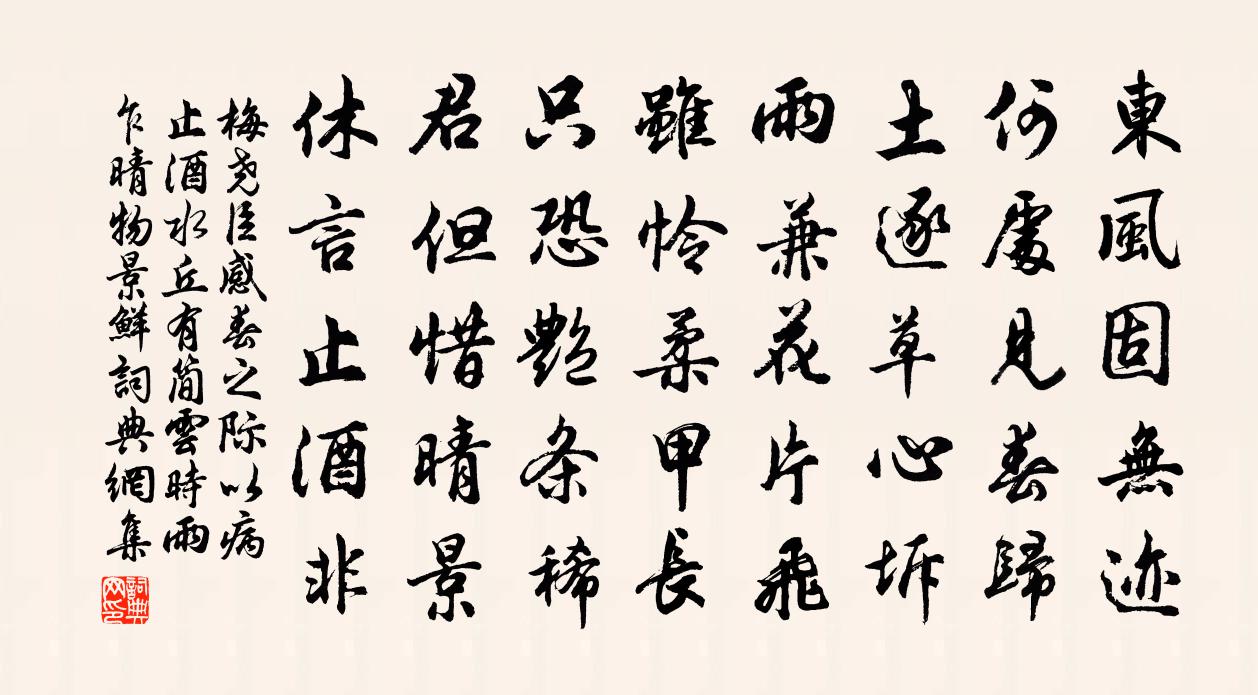 東風固無迹
何處見春歸
土逐草心坼
雨兼花片飛
雖怜柔甲長
只恐艷条稀
君但惜晴景
休言止酒非
梅尧臣感春之际以病
止酒水丘有简雲時雨
乍晴物景鮮詞典網集
詞典网印